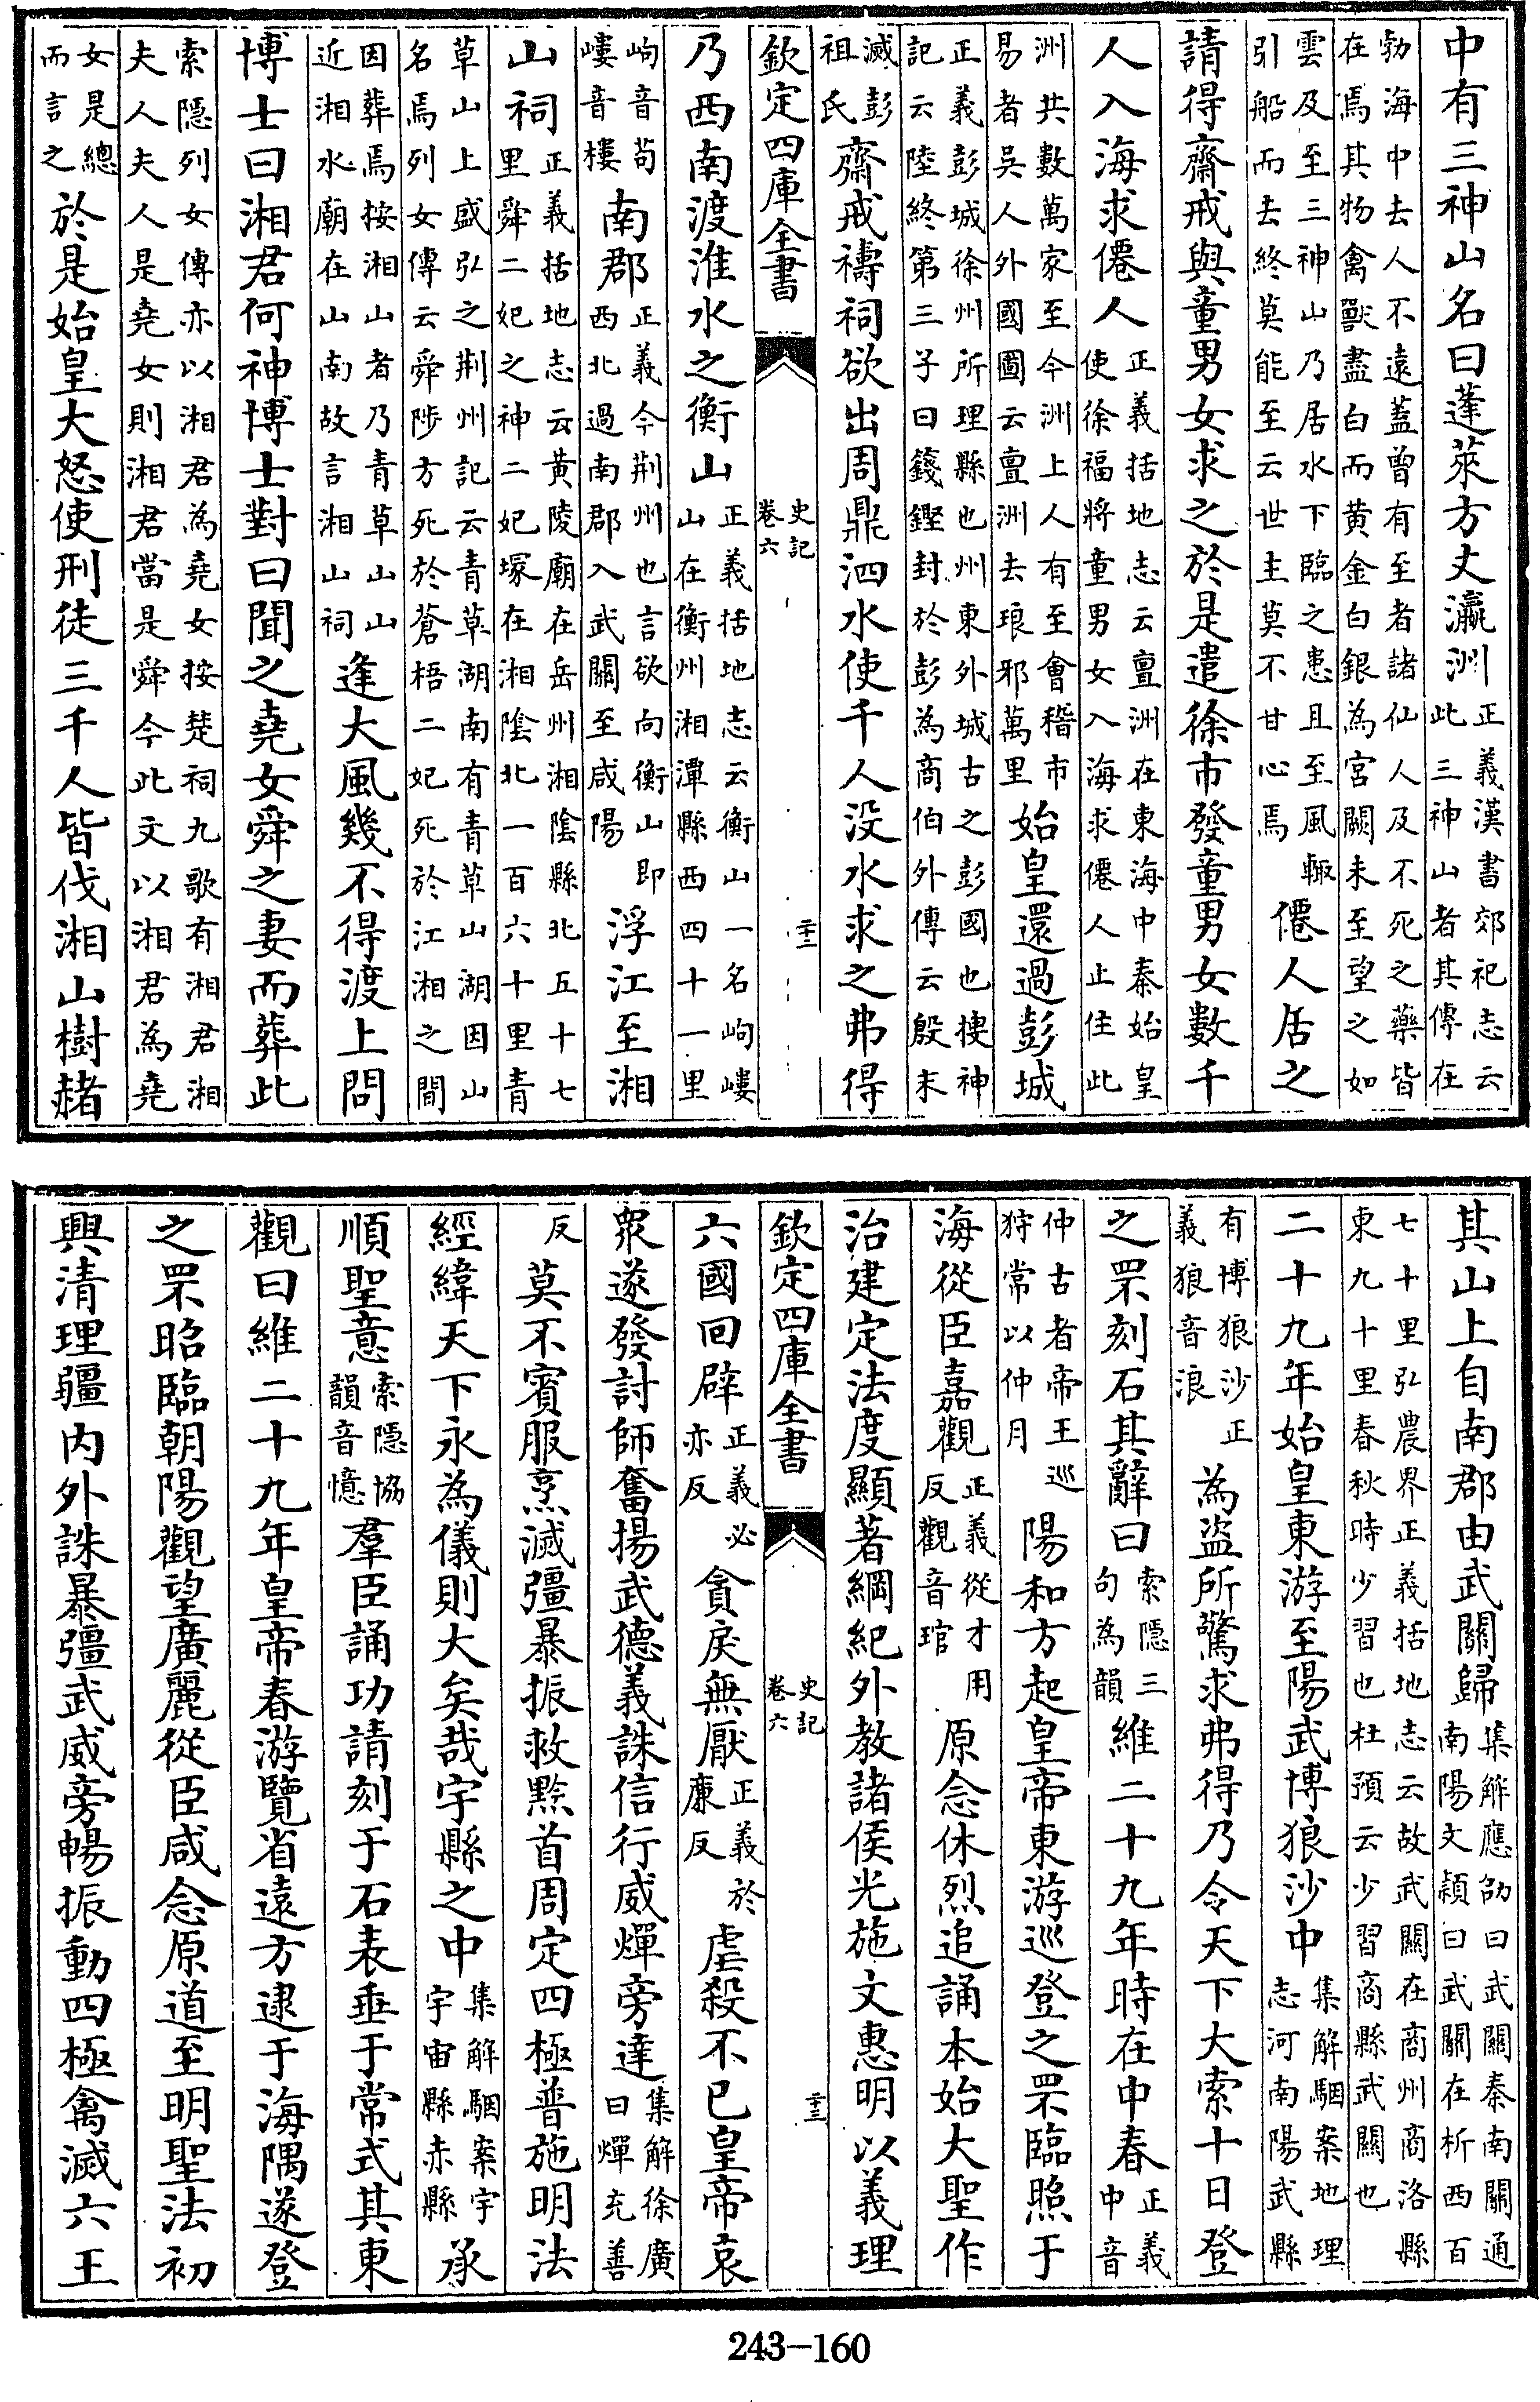 中有三神山名曰蓬萊方丈瀛洲正義漢書郊祀志云此三神山者其傳在
勃海中去人不遠蓋曾有至者諸仙人及不死之藥皆在焉其物禽獸盡白而黃金白銀為宮闕未至望之如
雲及至三神山乃居水下臨之患且至風輒引船而去終莫能至云世主莫不甘心焉僊人居之
請得齋戒與童男女求之於是遣徐市發童男女數千
人入海求僊人正義括地志云亶洲在東海中秦始皇使徐福將童男女入海求僊人止住此
洲共數萬家至今洲上人有至會稽市易者吳人外國圖云亶洲去琅邪萬里始皇還過彭城
正義彭城徐州所理縣也州東外城古之彭國也搜神記云陸終第三子曰籛鏗封於彭為商伯外傳云殷末
滅彭祖氏齋戒禱祠欲出周鼎泗水使千人没水求之弗得
欽定四庫全書 史記卷六 二十二
乃西南渡淮水之衡山正義括地志云衡山一名岣嶁山在衡州湘潭縣西四十一里
岣音苟嶁音樓南郡正義今荆州也言欲向衡山即西北過南郡入武關至咸陽浮江至湘
山祠正義括地志云黄陵廟在岳州湘陰縣北五十七里舜二妃之神二妃塚在湘陰北一百六十里青
草山上盛弘之荆州記云青草湖南有青草山湖因山名焉列女傳云舜陟方死於蒼梧二妃死於江湘之間
因葬焉按湘山者乃青草山山近湘水廟在山南故言湘山祠逢大風幾不得渡上問
博士曰湘君何神博士對曰聞之堯女舜之妻而葬此
索隱列女傳亦以湘君為堯女按楚祠九歌有湘君湘夫人夫人是堯女則湘君當是舜今此文以湘君為堯
女是總而言之於是始皇大怒使刑徒三千人皆伐湘山樹赭
其山上自南郡由武關歸集解應劭曰武關秦南關通南陽文穎曰武關在析西百
七十里弘農界正義括地志云故武關在商州商洛縣東九十里春秋時少習也杜預云少習商縣武關也
二十九年始皇東游至陽武博狼沙中集解駰案地理志河南陽武縣
有博狼沙正義狼音浪為盜所驚求弗得乃令天下大索十日登
之罘刻石其辭曰索隱三句為韻維二十九年時在中春正義中音
仲古者帝王巡狩常以仲月陽和方起皇帝東游巡登之罘臨照于
海從臣嘉觀正義從才用反觀音琯原念休烈追誦本始大聖作
治建定法度顯著綱紀外教諸侯光施文惠明以義理
欽定四庫全書 史記卷六 二十三
六國回辟正義必亦反貪戾無厭正義於廉反虐殺不已皇帝哀
衆遂發討師奮揚武德義誅信行威燀旁達集解徐廣曰燀充善
反莫不賓服烹滅彊暴振救黔首周定四極普施明法
經緯天下永為儀則大矣哉宇縣之中集解駰案宇宇宙縣赤縣承
順聖意索隱協韻音憶羣臣誦功請刻于石表垂于常式其東
觀曰維二十九年皇帝春游覽省遠方逮于海隅遂登
之罘昭臨朝陽觀望廣麗從臣咸念原道至明聖法初
興清理疆内外誅暴彊武威旁暢振動四極禽滅六王
243-160